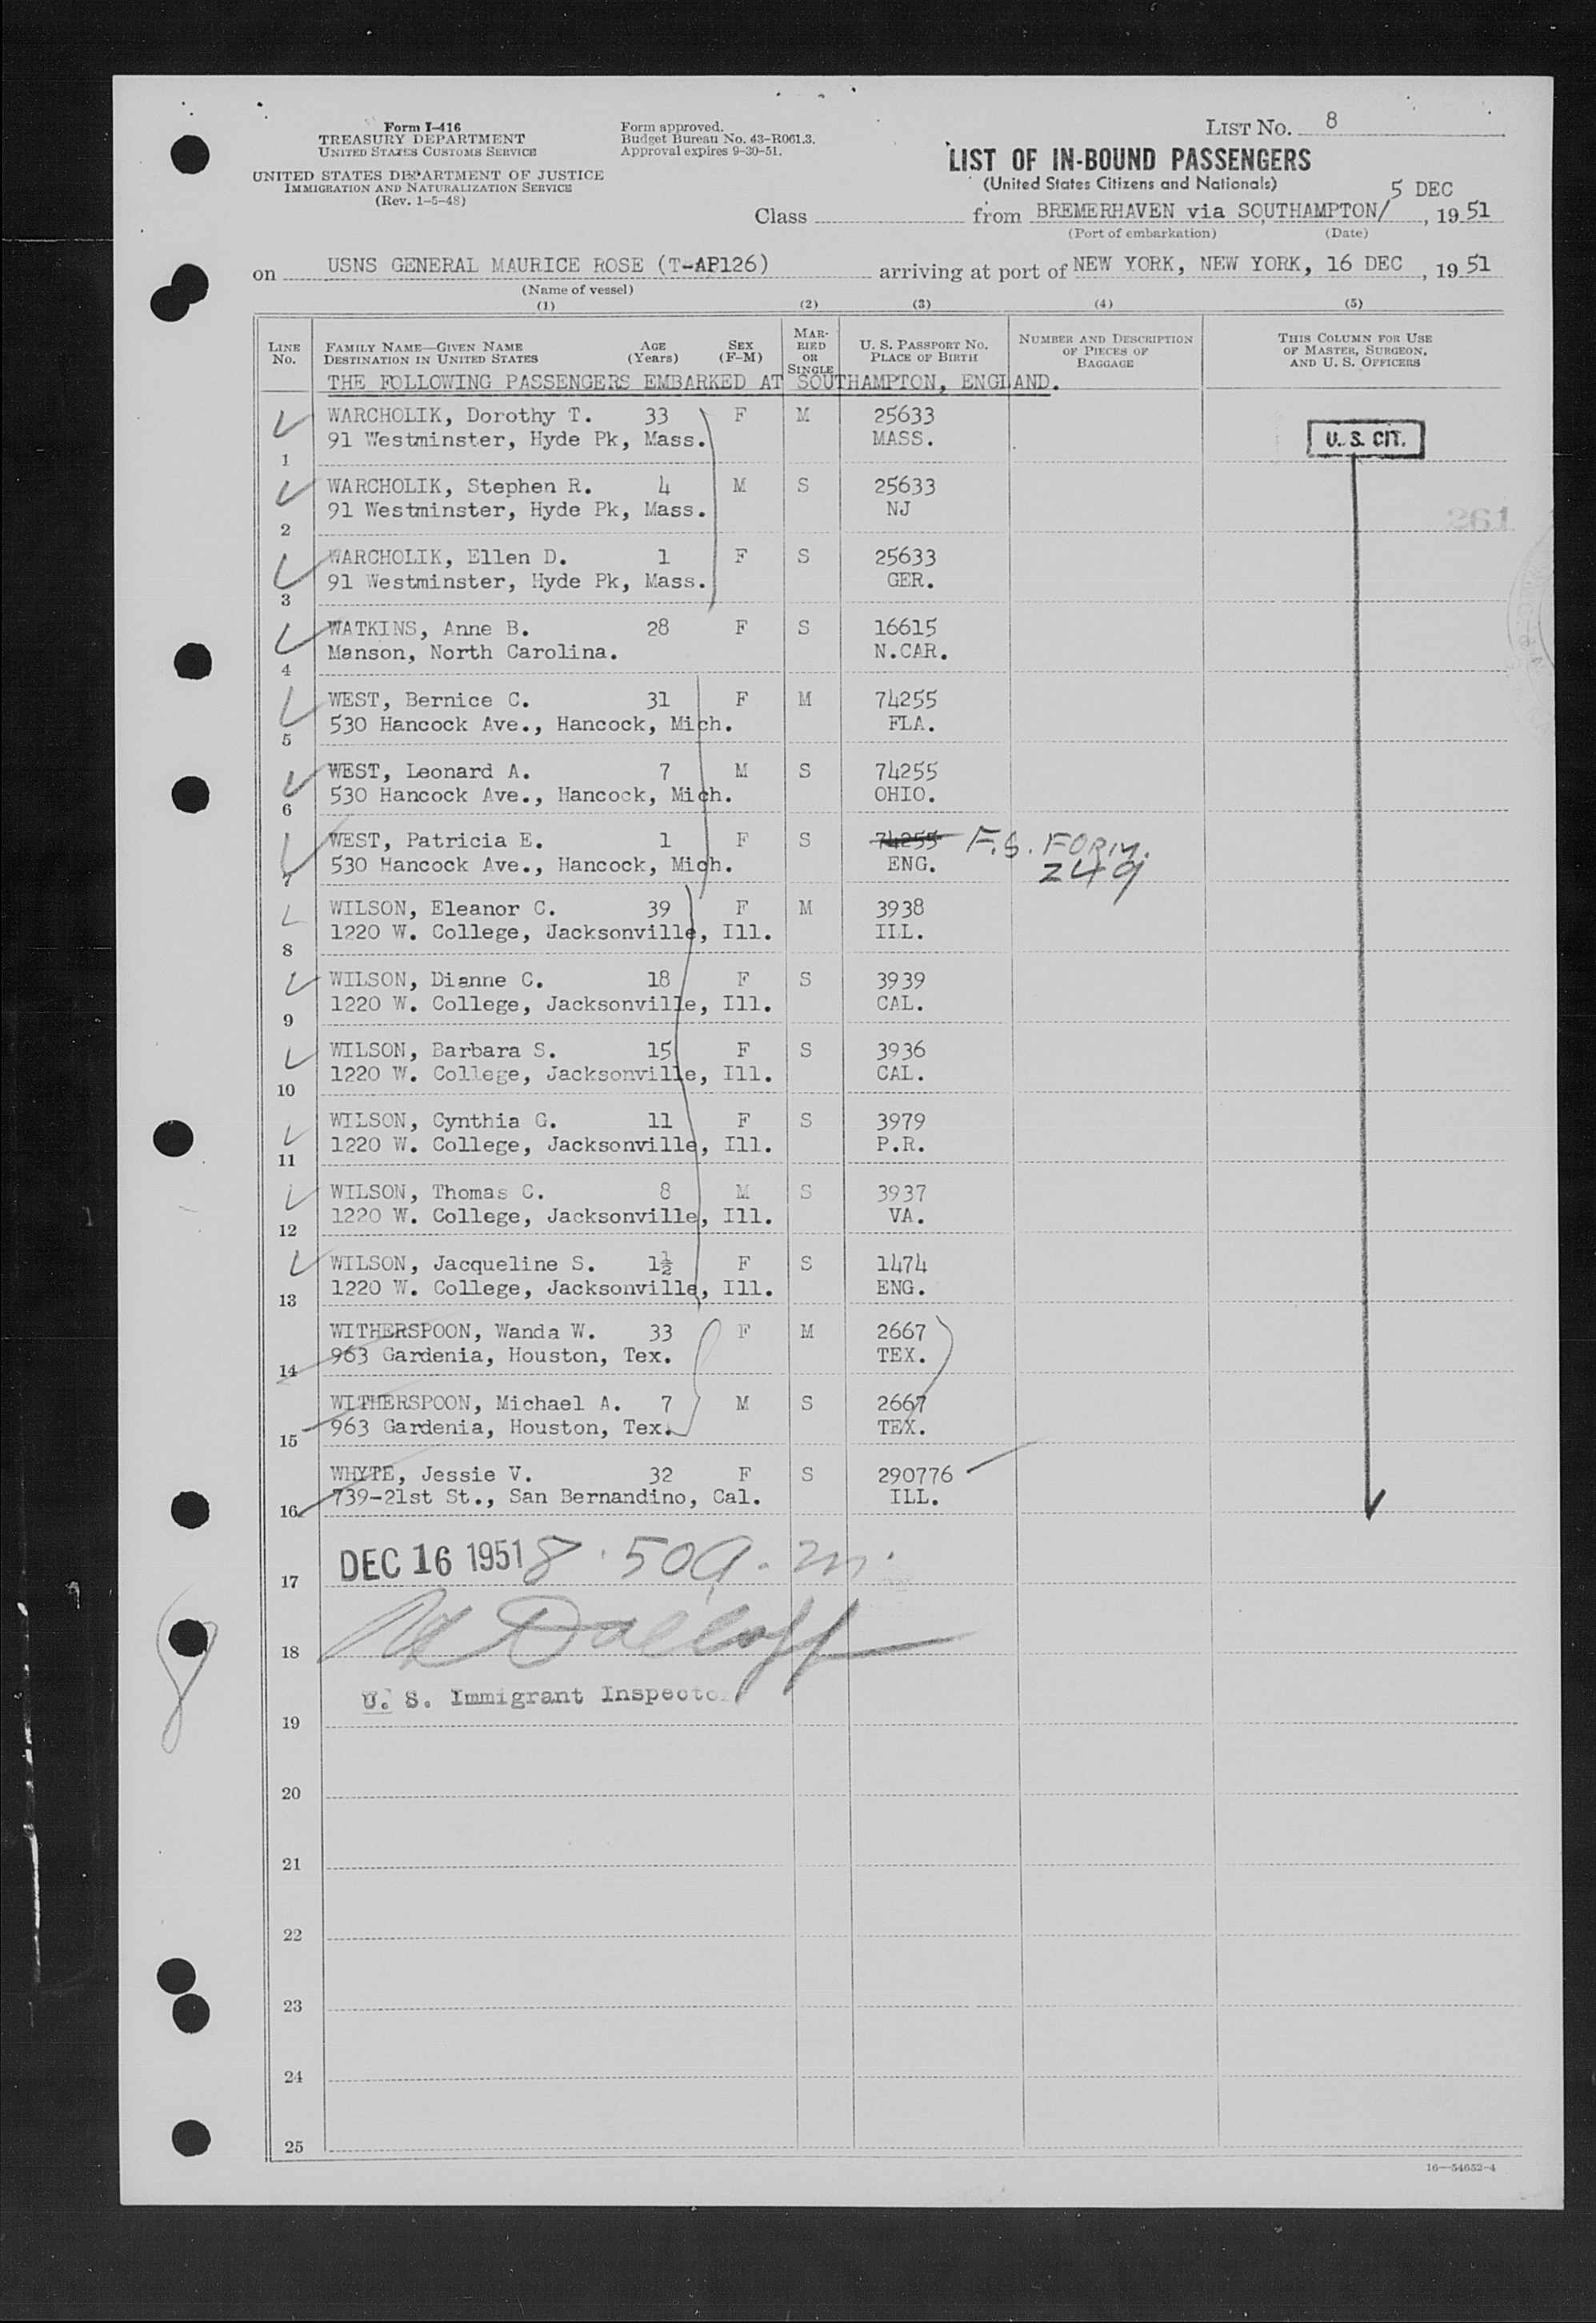 Form I-416
TREASURY DEPARTMENT
UNITED STATES CUSTOMS SERVICE
UNITED STATES DEPARTMENT OF JUSTICE
IMMIGRATION AND NATURALIZATION SERVICE
(Rev. 1-5-48)
Form approved.
Budget Bureau No. 43-R061.3.
Approval expires 9-30-51.
LIST NO. 8
LIST OF IN-BOUND PASSENGERS
(United States Citizens and Nationals)
Class from BREMERHAVEN via SOUTHAMPTON/ 5 DEC, 19 51
(Port of embarkation) (Date)
on USNS GENERAL MAURICE ROSE (T-AP126) arriving at port of NEW YORK, NEW YORK, 16 DEC, 19 51
(Name of vessel)
(1) (2) (3) (4) (5)
LINE NO. FAMILY NAME—GIVEN NAME DESTINATION IN UNITED STATES AGE (Years) SEX (F-M) MARRIED OR SINGLE U. S. PASSPORT NO. PLACE OF BIRTH NUMBER AND DESCRIPTION OF PIECES OF BAGGAGE THIS COLUMN FOR USE OF MASTER, SURGEON, AND U. S. OFFICERS
THE FOLLOWING PASSENGERS EMBARKED AT SOUTHAMPTON, ENGLAND.
WARCHOLIK, Dorothy T. 33 F M 25633
91 Westminster, Hyde Pk, Mass. MASS. U. S. CIT.
1
WARCHOLIK, Stephen R. 4 M S 25633
91 Westminster, Hyde Pk, Mass. NJ 261
2
WARCHOLIK, Ellen D. 1 F S 25633
91 Westminster, Hyde Pk, Mass. GER.
3
WATKINS, Anne B. 28 F S 16615
Manson, North Carolina. N.CAR.
4
WEST, Bernice C. 31 F M 74255
530 Hancock Ave., Hancock, Mich. FLA.
5
WEST, Leonard A. 7 M S 74255
530 Hancock Ave., Hancock, Mich. OHIO.
6
WEST, Patricia E. 1 F S 74255 F.S. FORM.
530 Hancock Ave., Hancock, Mich. ENG. 249
7
WILSON, Eleanor C. 39 F M 3938
1220 W. College, Jacksonville, Ill. ILL.
8
WILSON, Dianne C. 18 F S 3939
1220 W. College, Jacksonville, Ill. CAL.
9
WILSON, Barbara S. 15 F S 3936
1220 W. College, Jacksonville, Ill. CAL.
10
WILSON, Cynthia G. 11 F S 3979
1220 W. College, Jacksonville, Ill. P.R.
11
WILSON, Thomas C. 8 M S 3937
1220 W. College, Jacksonville, Ill. VA.
12
WILSON, Jacqueline S. 1½ F S 1474
1220 W. College, Jacksonville, Ill. ENG.
13
WITHERSPOON, Wanda W. 33 F M 2667
963 Gardenia, Houston, Tex. TEX.
14
WITHERSPOON, Michael A. 7 M S 2667
963 Gardenia, Houston, Tex. TEX.
15
WHYTE, Jessie V. 32 F S 290776
739-21st St., San Bernandino, Cal. ILL.
16
DEC 16 1951 8.50 a.m.
17
18
U. S. Immigrant Inspector
19
20
21
22
23
24
25
16—54652-4
8